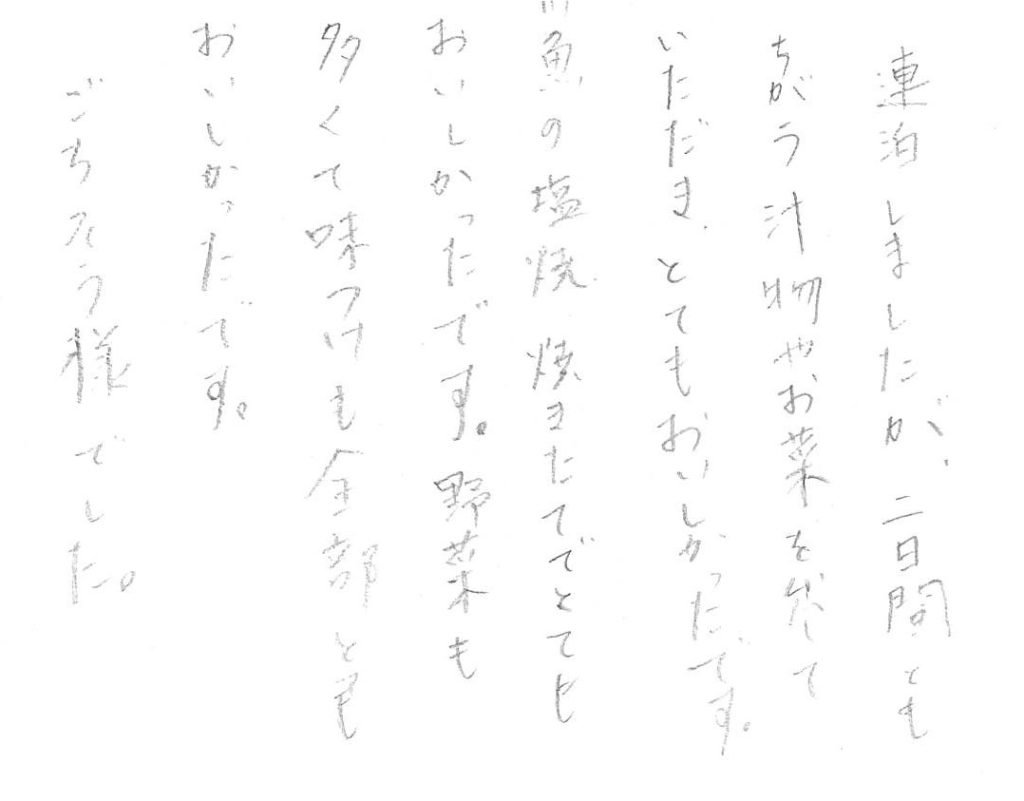 連泊しましたが、二日間とも
ちがう汁物やお菜を出して
いただき、とてもおいしかったです。
川魚の塩焼 焼きたてでとても
おいしかったです。野菜も
多くて味つけも全部とても
おいしかったです。
ごちそう様でした。